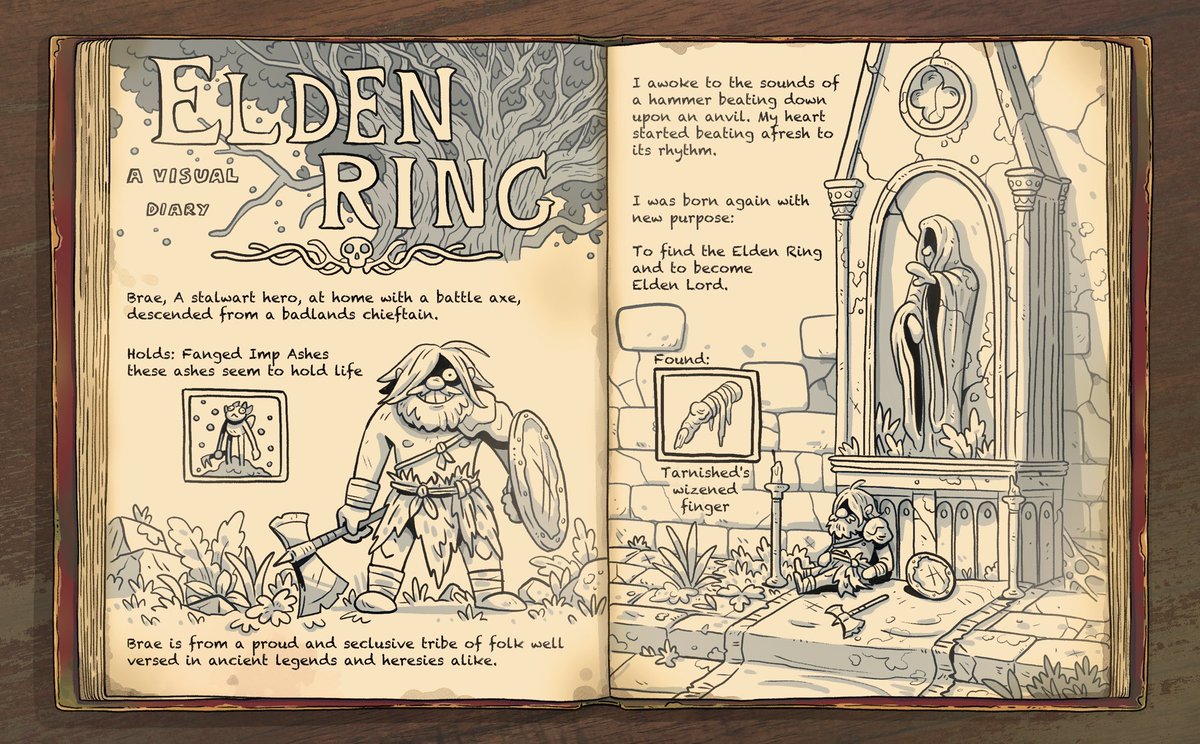 ELDEN
RING
A VISUAL
DIARY
Brae, A stalwart hero, at home with a battle axe,
descended from a badlands chieftain.
Holds: Fanged Imp Ashes
these ashes seem to hold life
Brae is from a proud and seclusive tribe of folk well
versed in ancient legends and heresies alike.
I awoke to the sounds of
a hammer beating down
upon an anvil. My heart
started beating afresh to
its rhythm.
I was born again with
new purpose:
To find the Elden Ring
and to become
Elden Lord.
Found:
Tarnished's
wizened
finger